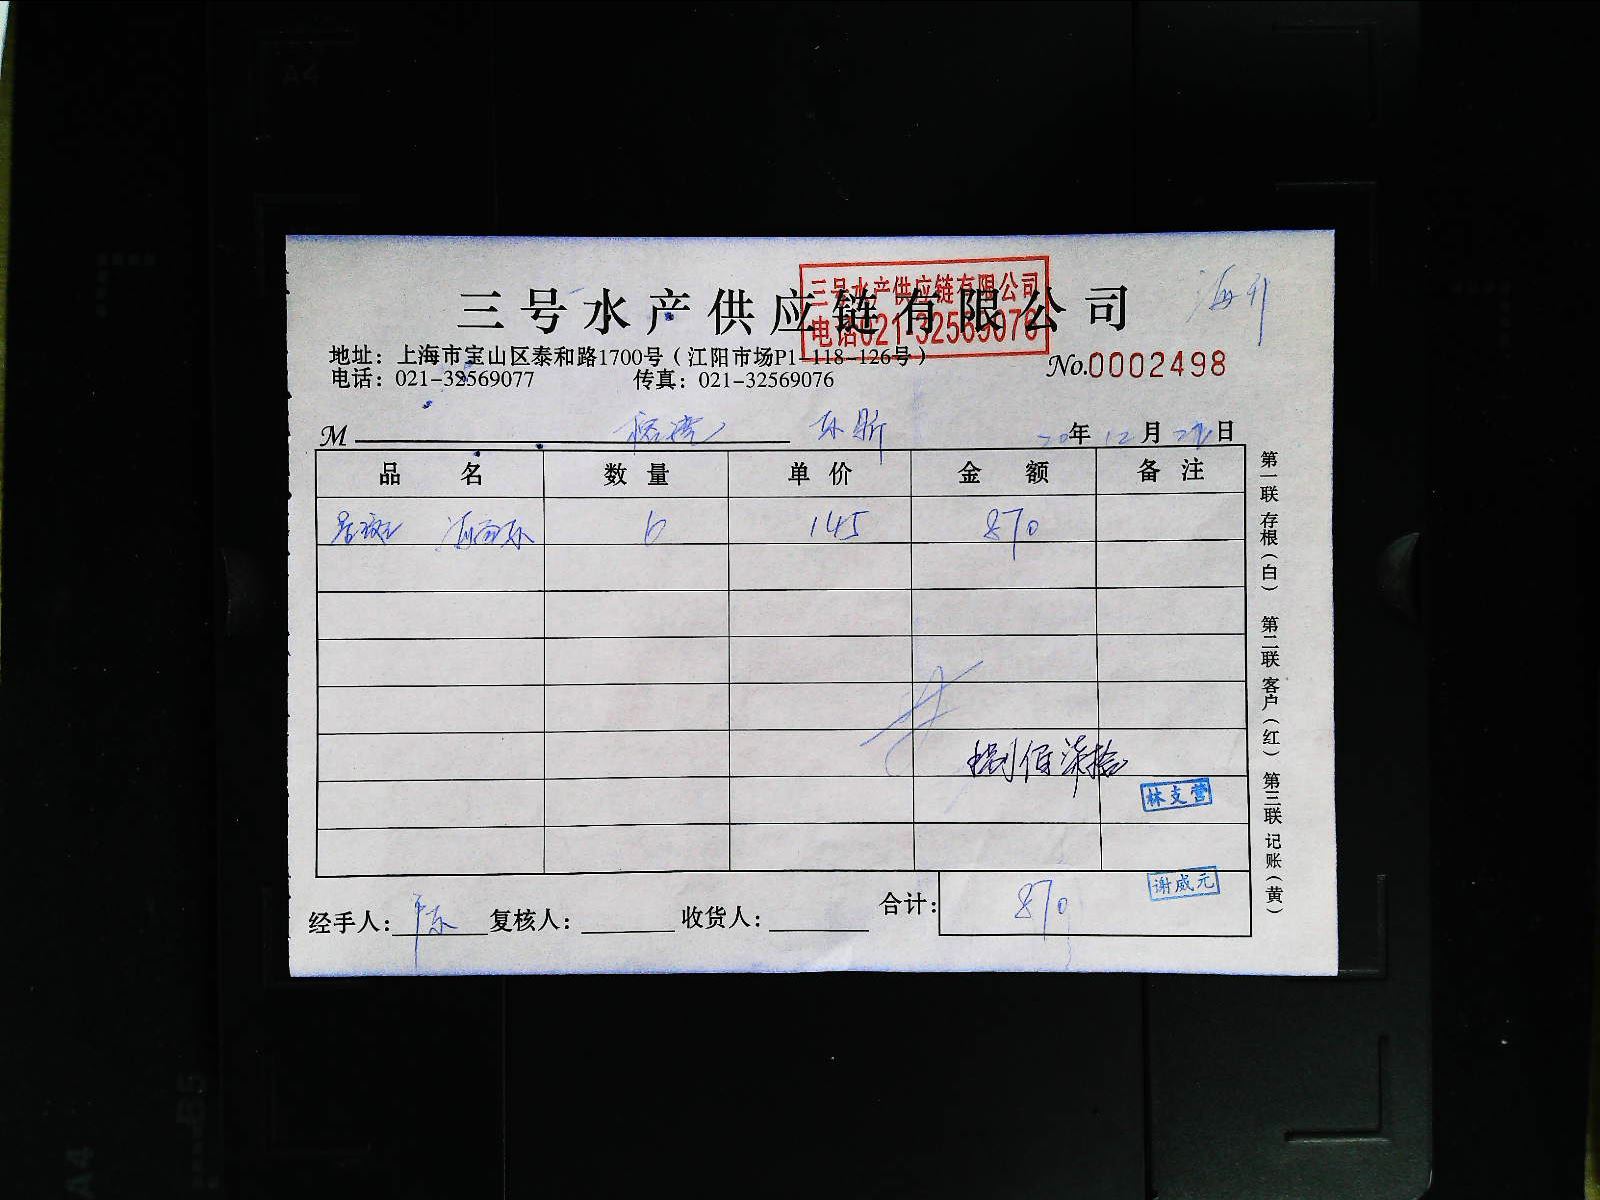 三号水产供应链有限公司
三号水产供应链有限公司
电话021-32569076
地址：上海市宝山区泰和路1700号（江阳市场P1-118-126号）
电话：021-32569077 传真：021-32569076
No.0002498
M
20年 12月 日
品名 数量 单价 金额 备注
6 145 870
捌佰柒拾
林支营
谢威元
合计： 870
经手人： 复核人： 收货人：
第一联 存根（白） 第二联 客户（红） 第三联 记账（黄）
A4
B5
A4